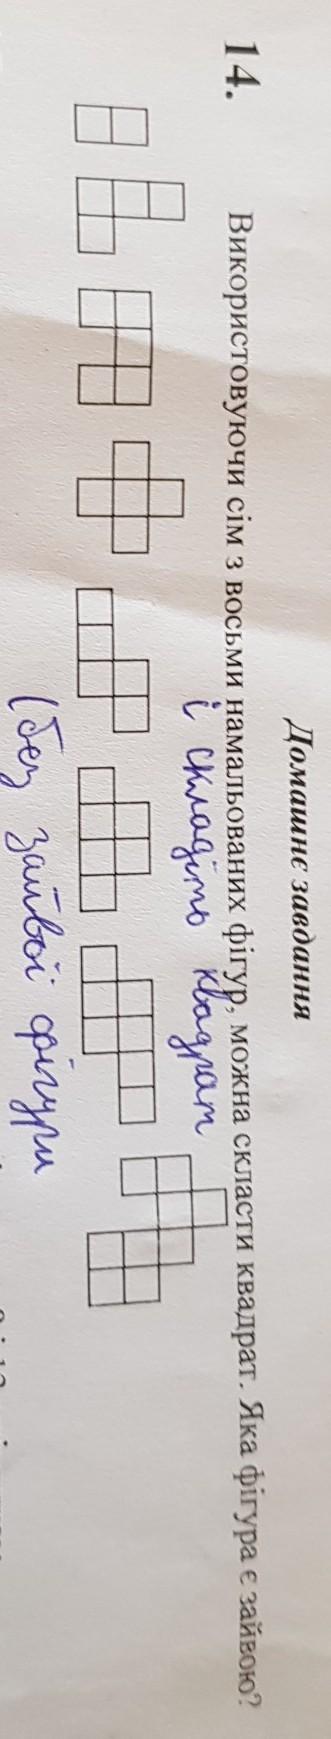 Домашнє завдання
14. Використовуючи сім з восьми намальованих фігур, можна скласти квадрат. Яка фігура є зайвою?
і складіть квадрат
(без зайвої фігури